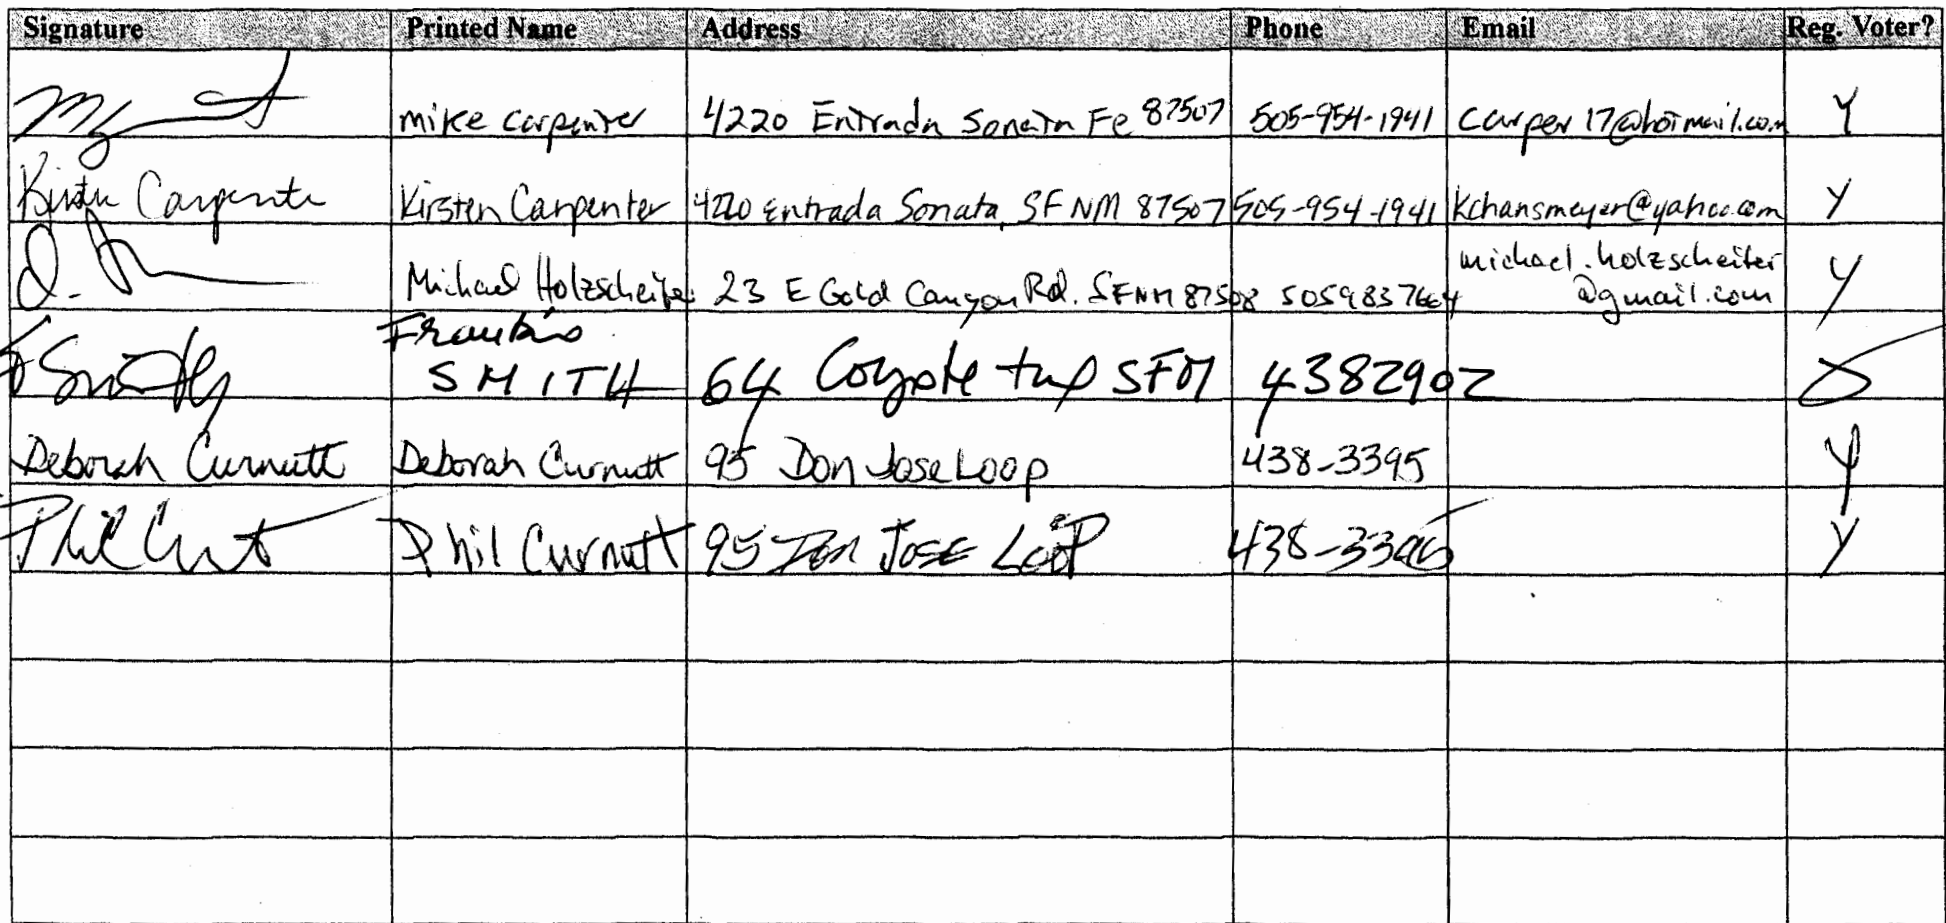 Signature Printed Name Address Phone Email Reg. Voter?
mike carpenter 4220 Entrada Sonata Fe 87507 505-954-1941 carper17@hotmail.com Y
Kirsten Carpenter Kirsten Carpenter 4220 Entrada Sonata, SF NM 87507 505-954-1941 kchansmeyer@yahoo.com Y
Michael Holzscheiter 23 E Gold Canyon Rd. SFNM 87508 5059837664 michael.holzscheiter Y
@gmail.com
SMITH 64 Coyote SFM 4382902
Deborah Curnutt Deborah Curnutt 95 Don Jose Loop 438-3395 Y
Phil Curnutt 95 Don JOSE LOOP 438-3395 Y